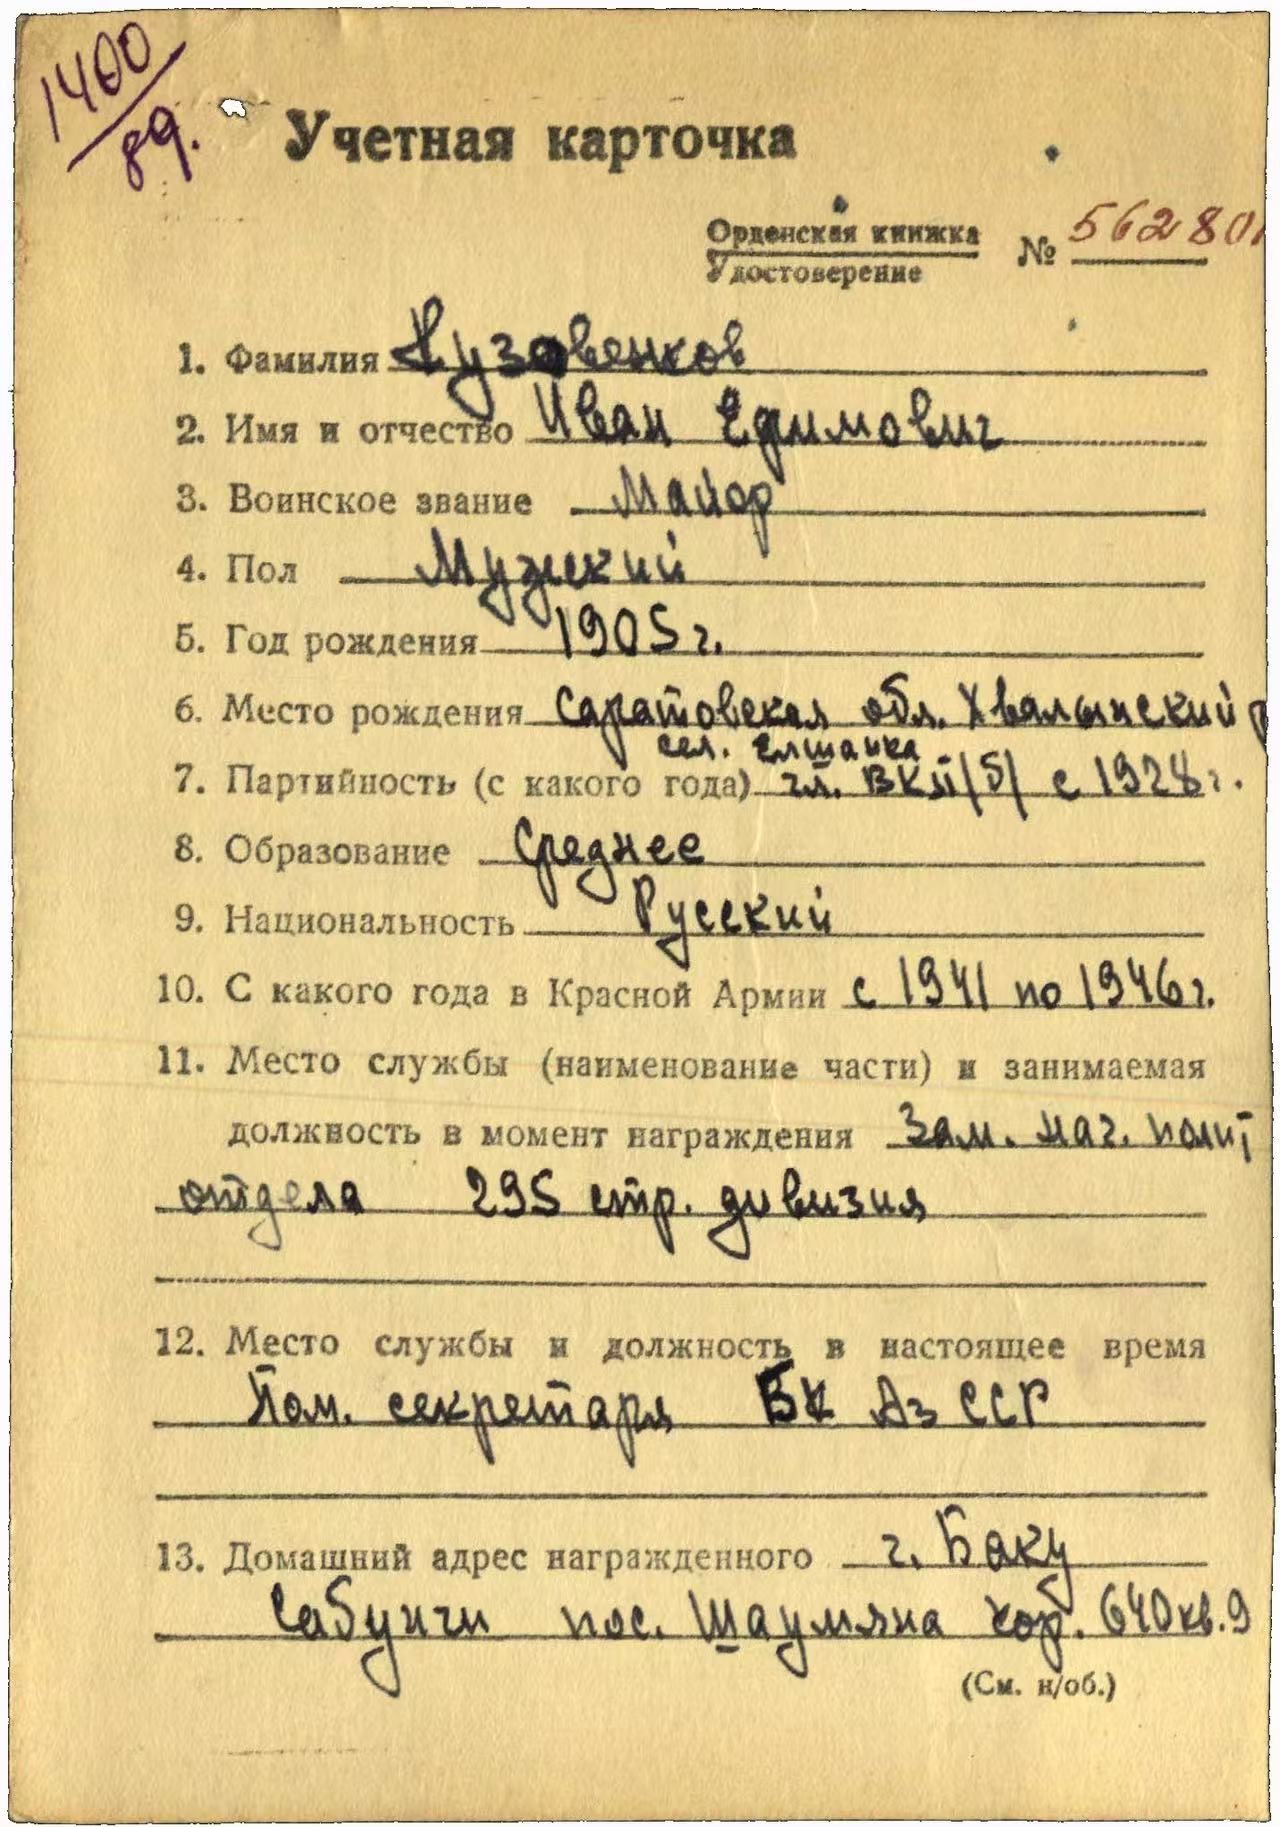 1400
89.
Учетная карточка
Орденская книжка
Удостоверение
№ 562801
1. Фамилия Кузовенков
2. Имя и отчество Иван Ефимович
3. Воинское звание Майор
4. Пол Мужский
5. Год рождения 1905 г.
6. Место рождения Саратовская обл. Хвалынский р
сел. Елшанка
7. Партийность (с какого года) чл. ВКП/б/ с 1928 г.
8. Образование Среднее
9. Национальность Русский
10. С какого года в Красной Армии с 1941 по 1946 г.
11. Место службы (наименование части) и занимаемая
должность в момент награждения Зам. нач. полит
отдела 295 стр. дивизия
12. Место службы и должность в настоящее время
Пом. секретаря БК Аз ССР
13. Домашний адрес награжденного г. Баку
Сабунчи пос. Шаумяна кор. 640 кв. 9
(См. н/об.)